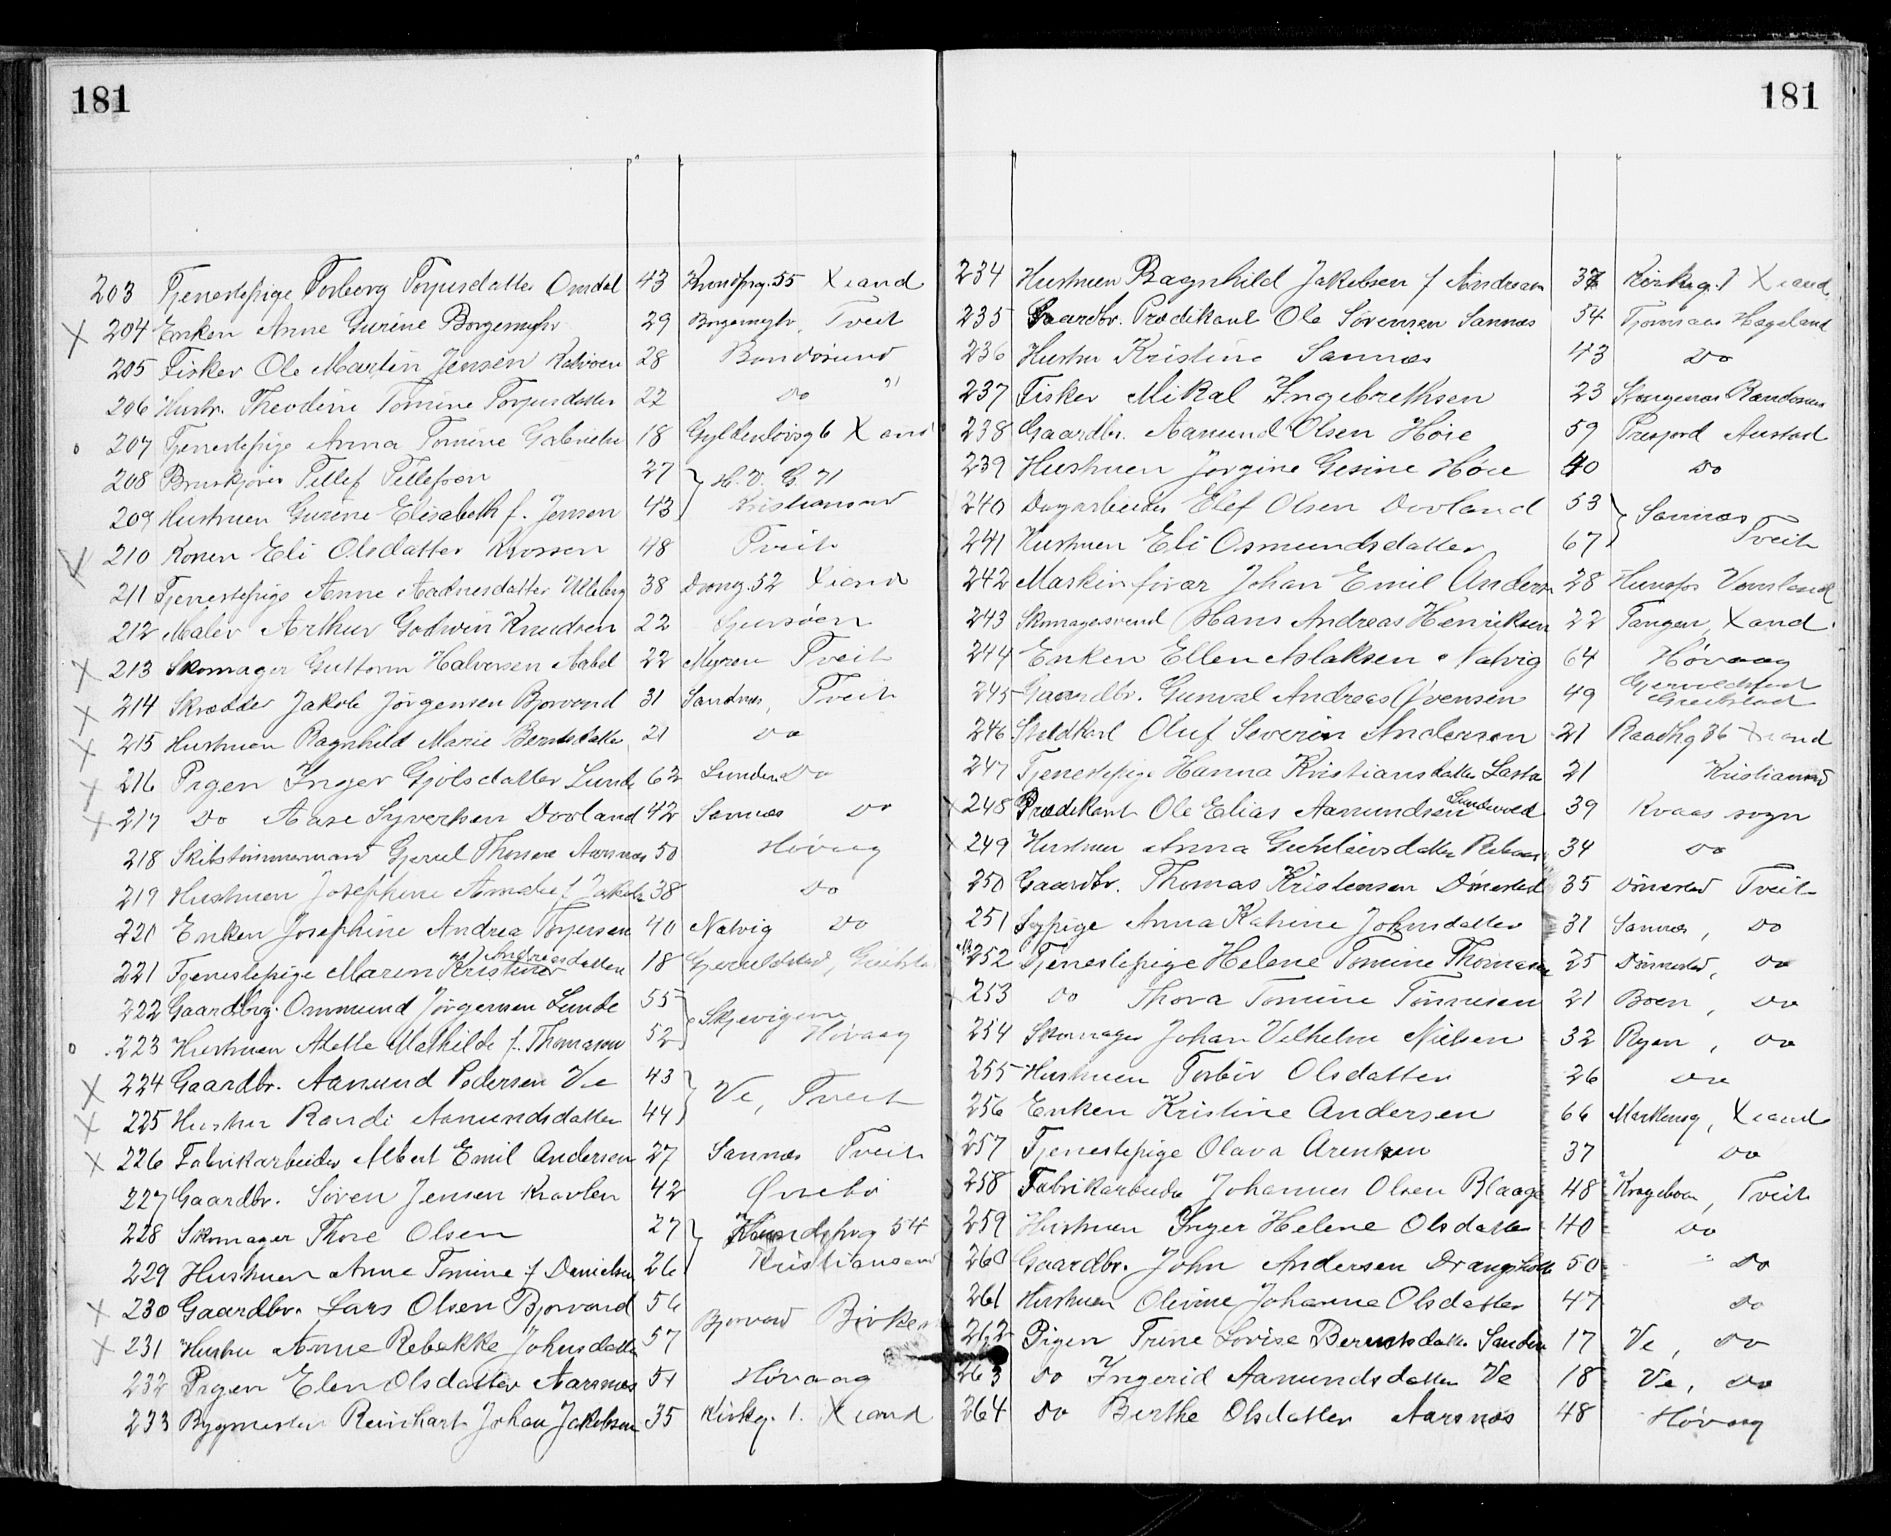 181
203 Tjenestepige Torborg Torjusdatter Omdal 43 Kronprg. 55 X sand
X 204 Enken Anne Gurine Borgemyhr 29 Borgemyhr, Tveit
205 Fisker Ole Martin Jensen 28 Randøsund
206 Hustr. Theodine Tomine Torjusdatter 22 do "
o 207 Tjenestepige Anna Tomine Gabrielsen 18 Gyldenløvsg 6 X sand
208 Tellef Tellefsen 27 H. V. G. 71
209 Hustruen Gurine Elisabeth f. Jensen 43 Kristianssand
X 210 Konen Eli Olsdatter Krossen 48 Tveit
211 Tjenestepige Anne Aadnesdatter Ulleberg 38 Drong. 52 X sand
212 Maler Arthur Godwin Knudsen 22
X 213 Skomager Guttorm Halvorsen Aabel 22 Myren Tveit
X 214 Skrædder Jakob Jörgensen Bjorvand 31 Sandnes, Tveit
X 215 Hustruen Ragnhild Marie Berntsdatter 21 do
X 216 Pigen Inger Gjölsdatter Lunde 62 Lunden do
X 217 Do Aase Syvertsen Dovland 42 Sannæs do
218 Skibstømmermand Gjerul Thomsen Aarsnæs 50 Høvaag
219 Hustruen Josephine Amalie f. Jakobs 38 do
220 Enken Josephine Andrea Torjersen 40 Natvig do
221 Tjenestepige Maren Kristine Andreasdatter 18 Gjeruldstad,
222 Gaardbrg. Ommund Jörgensen Lunde 55 Skjevigen
o 223 Hustruen Alette Mathilde f. Thomassen 52 Høvaag
X 224 Gaardbr. Aamund Pedersen Ve 43 Ve, Tveit
X 225 Hustru Randi Aamundsdatter 44
X 226 Fabrikarbeider Albert Emil Andersen 27 Sannæs Tveit
227 Gaardbr. Sören Jensen Kravlen 42 Øvrebö
228 Skomager Thore Olsen 27 54
229 Hustruen Anne Tomine f. Danielsen 26 Kristianssand
X 230 Gaardbr. Lars Olsen Bjorvand 56 Bjorvand Birkenes
X 231 Hustru Anne Rebekke Johnsdatter 57
232 Pigen Elen Olsdatter Aarsnæs 51 Høvaag
233 Bygmester Reinhart Johan Jakobsen 35 Kirkg. 1. X sand
181
234 Hustruen Ragnhild Jakobsen f Andreasen 37 Kirkeg. 1 X sand
235 Gaardbr. Prædikant Ole Sörensen Sannæs 54 Tjomsaas Hægeland
236 Hustru Kristine Sannæs 43 do
237 Fisker Mikal Ingebrethsen 23 Stangenæs Randøsund
238 Gaardbr. Aamund Olsen Höie 59 Austad
239 Hustruen Jorgine Gesine Höie 40 do
240 Dagarbeider Elef Olsen Dovland 53 Sannæs
241 Hustruen Eli Osmundsdatter 67 Tveit
242 Maskinfyrar Johan Emil Anders 28 Hunsfos Vennesland
243 Skomagersvend Hans Andreas Henriksen 22 Tangen, X sand
244 Enken Ellen Aslaksen Natvig 64 Høvaag
245 Gaardbr. Gunval Andreas Ovensen 49 Gjeruldstad
246 Staldkarl Oluf Severin Andersen 21 Raadhg 36 X sand
247 Tjenestepige Hanna Kristiansdatter Lasta 21 Kristianssand
X 248 Prædikant Ole Elias Aamundsen Sundvold 39 Kvaas sogn
249 Hustruen Anna 34 do
250 Gaardbr. Thomas Kristensen Dönestad 35 Dönestad Tveit
251 Sypige Anna Katrine Johnsdatter 31 Sannæs, do
252 Tjenestepige Helene Tomine Thomassen 25 Dönnestad, do
253 do Thora Tomine Tönnesen 21 Boen, do
254 Skomager Johan Vilhelm Nielsen 32 Ryen, do
255 Hustruen Torbör Olsdatter 26 do
256 Enken Kristine Andersen 66 Markensg, X sand
257 Tjenestepige Olava Arentsen 37 do
258 Fabrikarbeider Johannes Olsen Blaage 48 Krageboen, Tveit
259 Hustruen Inger Helene Olsdatter 40 do
260 Gaardbr. John Andersen Drangsholt 50 " do
261 Hustruen Olivine Johanne Olsdatter 47 do
262 Pigen Trine Lovise Berntsdatter Sandn 17 Ve, do
263 do Ingerid Aamundsdatter Ve 18 Ve, do
264 do Berthe Olsdatter Aarsnæs 48 Høvaag